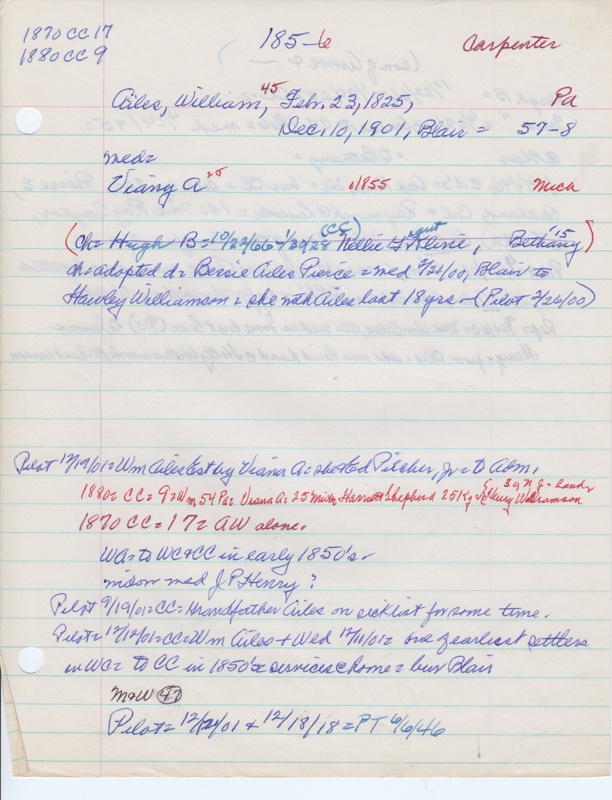 1870 CC 17
1880 CC 9
185-6
Carpenter
Ailes, William, 45 Feb. 23, 1825, Pa
Dec. 10, 1901, Blair = 57-8
med=
Viany A 25 c/855 Mich
(ch= Hugh B= 10/22/66 - 1/30/28 (CC) Nellie Kline, Bethany '15)
ch=adopted d= Bessie Ailes Pierce = med 2/21/00, Blair to
Hawley Williamson = she with Ailes last 18 yrs - (Pilot 2/26/00)
Pilot 12/19/01= Wm Ailes Est by Viana A= she + Ed Pilcher, Jr = to Adm.
1880= CC= 9= Wm 54 Pa= Viana A= 25 Mich= Harriet Shepherd 25 Henry Williamson
1870 CC= 17= AW alone.
WC= to WC+CC in early 1850's -
widow med J P Henry?
Pilot 9/19/01= CC= Grandfather Ailes on sicklist for some time.
Pilot= 12/12/01= CC= Wm Ailes + Wed 12/11/01= one of earliest settlers
in WC= to CC in 1850's= services @ home = bur Blair
M+W 47
Pilot= 12/12/01 + 12/18/18 = PT 6/6/46